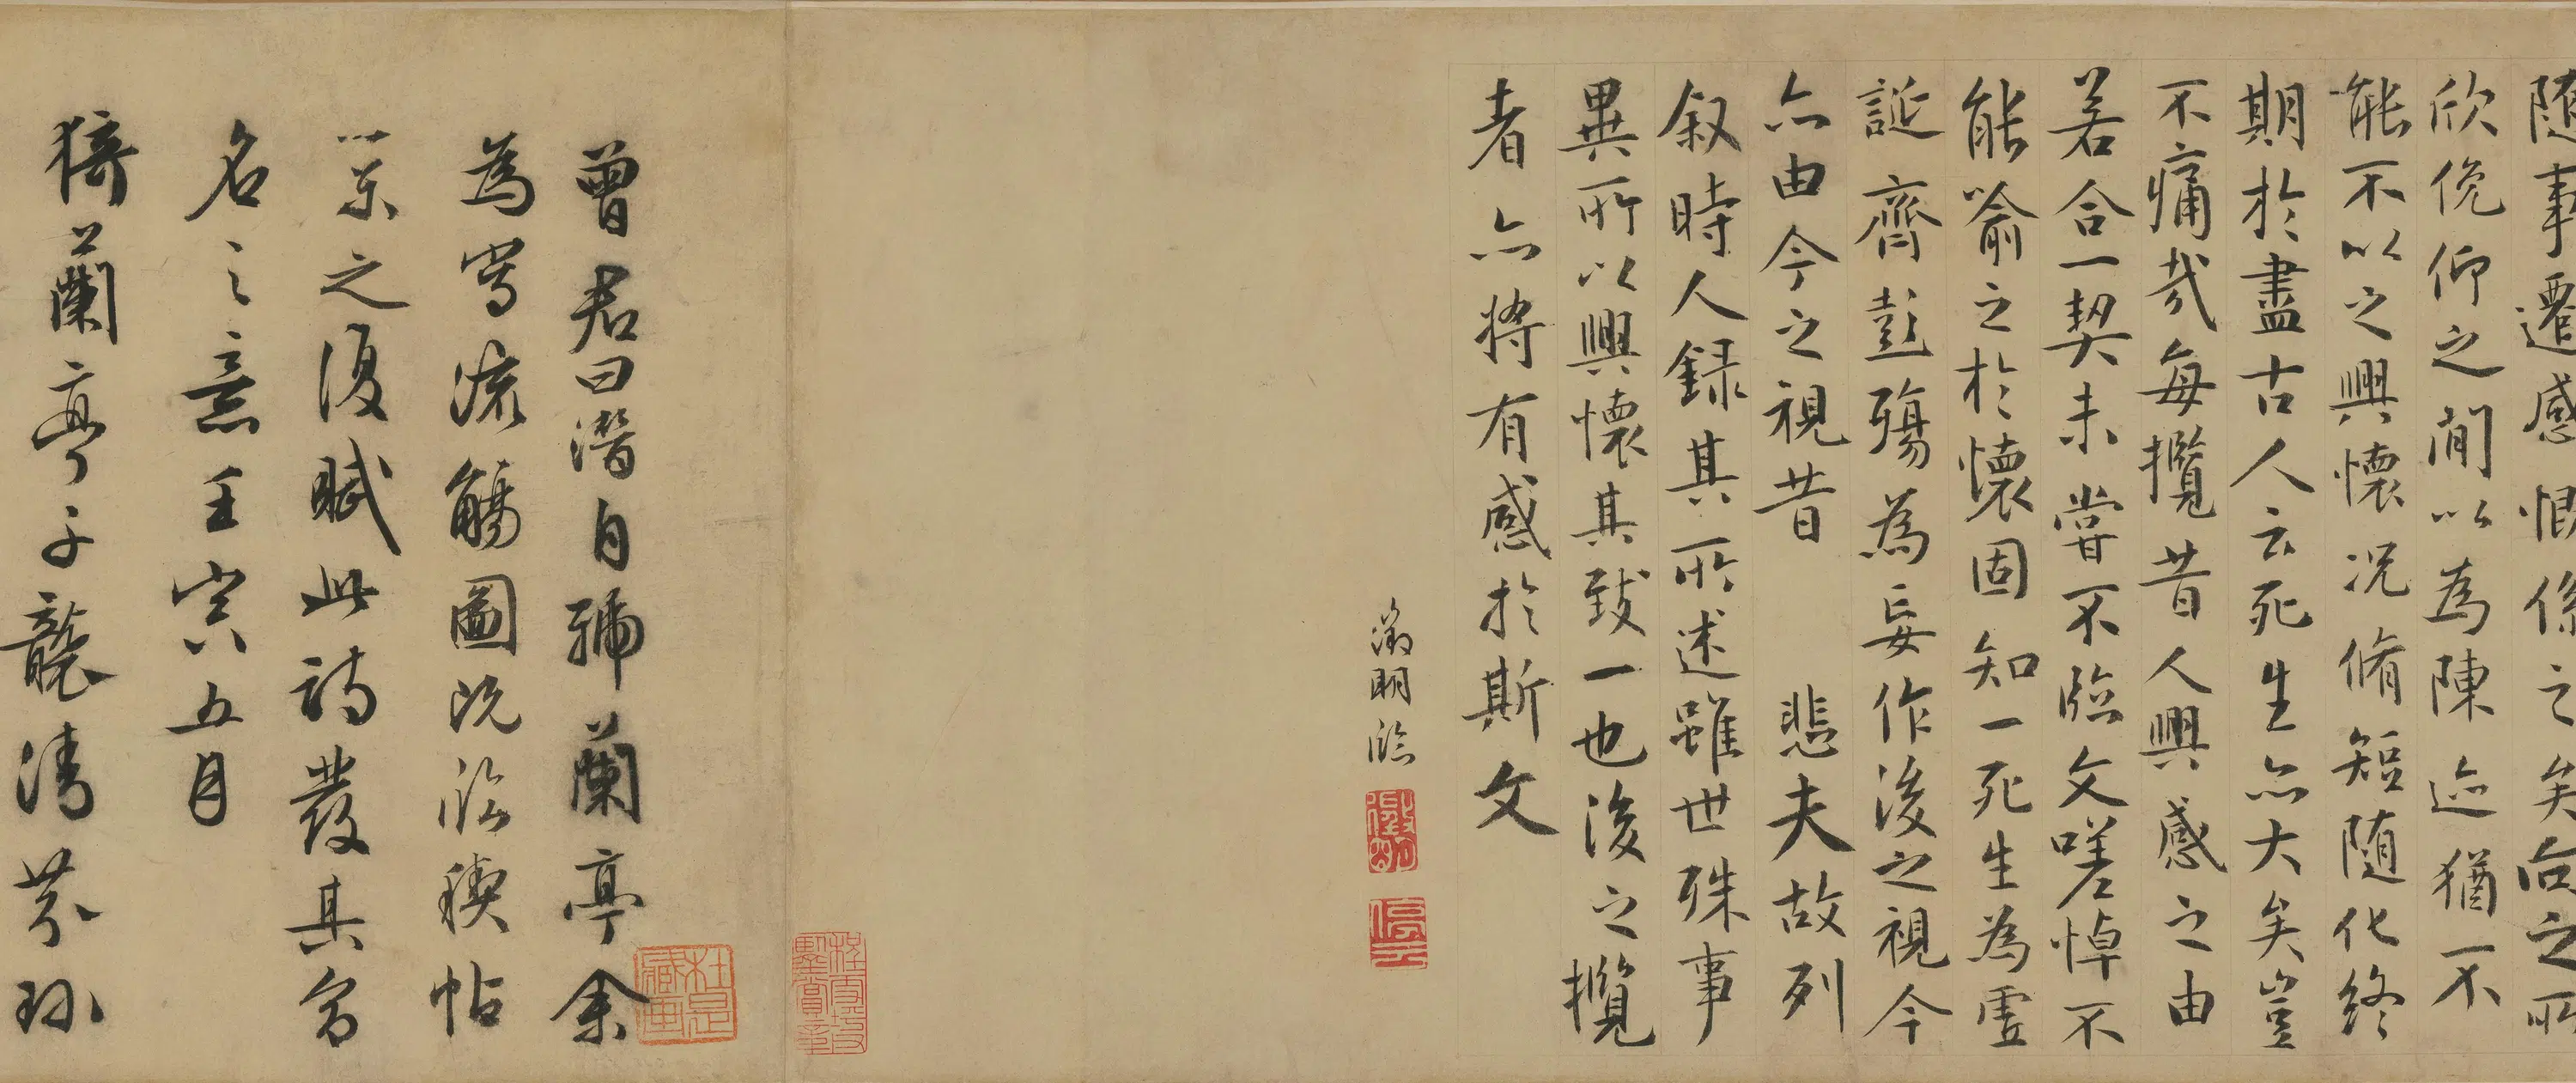 隨事遷感慨係之矣向之所
欣俛仰之閒以為陳迹猶不
能不以之興懷況脩短隨化終
期於盡古人云死生亦大矣豈
不痛哉每攬昔人興感之由
若合一契未嘗不臨文嗟悼不
能喻之於懷固知一死生為虛
誕齊彭殤為妄作後之視今
亦由今之視昔 悲夫故列
叙時人錄其所述雖世殊事
異所以興懷其致一也後之攬
者亦將有感於斯文
徵明臨
徵明
曾君曰潛自號蘭亭余
為寫流觴圖既臨禊帖
以系之復賦此詩發其命
名之意壬寅五月
猗蘭亭子襲清芬珍